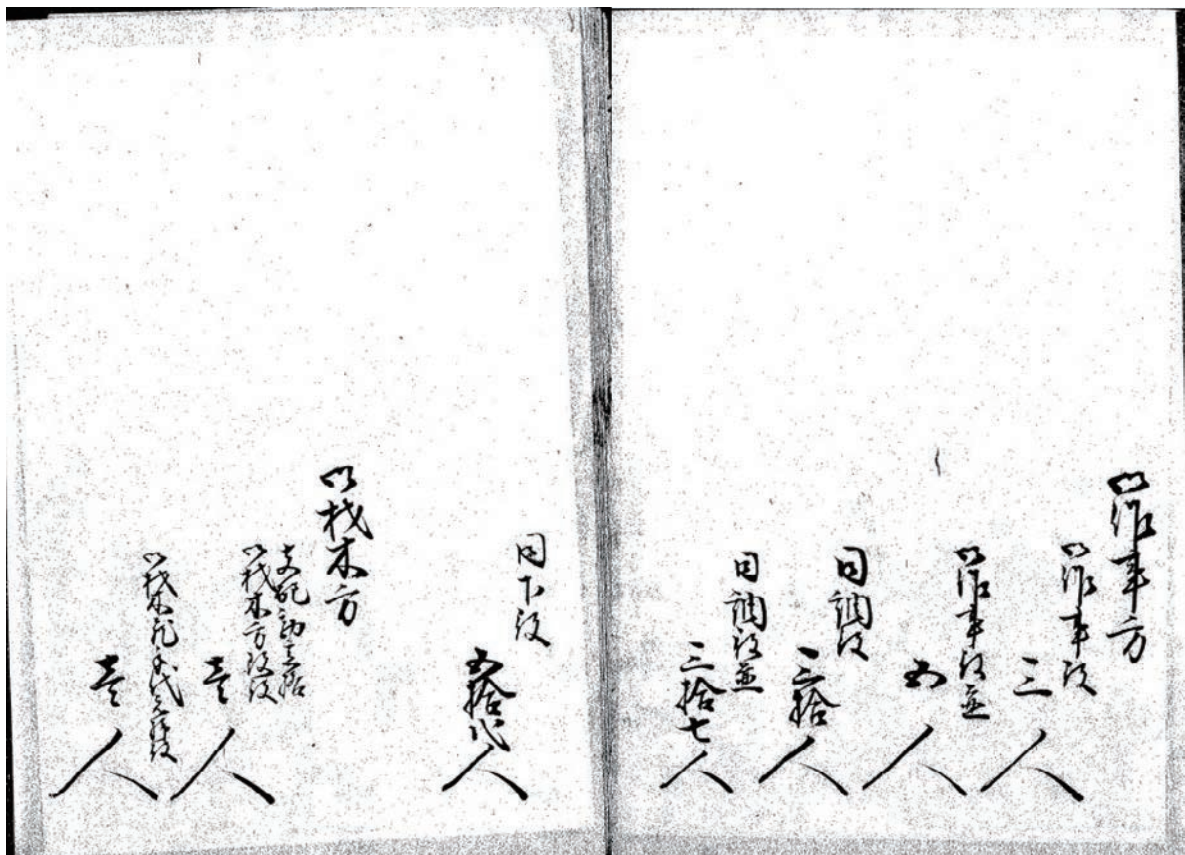 御作事方
御作事役
三人
御作事役並
五人
同調役
三拾人
同調役並
三拾七人
同下役
五拾八人
御材木方
支配勘定格
御材木方改役
壱人
御材木
壱人